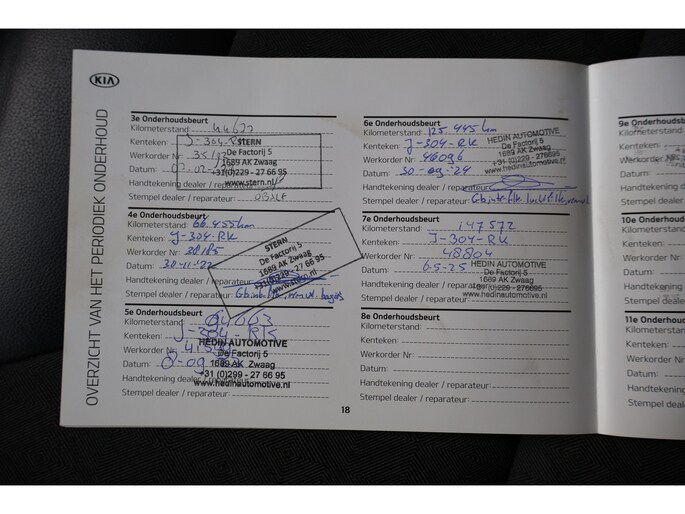 KIA
OVERZICHT VAN HET PERIODIEK ONDERHOUD
3e Onderhoudsbeurt
Kilometerstand: 44622
Kenteken: J-304-RK
Werkorder Nr:
Datum:
Handtekening dealer / reparateur:
Stempel dealer / reparateur:
STERN
De Factorij 5
1689 AK Zwaag
+31(0)229 - 27 66 95
www.stern.nl
4e Onderhoudsbeurt
Kilometerstand: 66.455km
Kenteken: J-304-RK
Werkorder Nr: 28185
Datum: 30-11-'22
Handtekening dealer / reparateur:
Stempel dealer / reparateur:
STERN
De Factorij 5
1689 AK Zwaag
+31(0)229 - 27 66 95
www.stern.nl
5e Onderhoudsbeurt
Kilometerstand:
Kenteken: J-304-RK
Werkorder Nr:
Datum:
Handtekening dealer / reparateur:
Stempel dealer / reparateur:
HEDIN AUTOMOTIVE
De Factorij 5
1689 AK Zwaag
+31 (0)299 - 27 66 95
www.hedinautomotive.nl
6e Onderhoudsbeurt
Kilometerstand: 125.445km
Kenteken: J-304-RK
Werkorder Nr: 46096
Datum: 30-aug-'24
Handtekening dealer / reparateur:
Stempel dealer / reparateur:
HEDIN AUTOMOTIVE
De Factorij 5
1689 AK Zwaag
+31(0)229 - 276695
www.hedinautomotive.nl
7e Onderhoudsbeurt
Kilometerstand: 147572
Kenteken: J-304-RK
Werkorder Nr: 48804
Datum: 6-5-25
Handtekening dealer / reparateur:
Stempel dealer / reparateur:
HEDIN AUTOMOTIVE
De Factorij 5
1689 AK Zwaag
+31(0)229 - 276695
www.hedinautomotive.nl
8e Onderhoudsbeurt
Kilometerstand:
Kenteken:
Werkorder Nr:
Datum:
Handtekening dealer / reparateur:
Stempel dealer / reparateur:
18
9e Onderhoudsb
Kilometerstand
Kenteken:
Werkorder Nr:
Datum:
Handtekening
Stempel dealer
10e Onderhou
Kilometerstan
Kenteken:
Werkorder N
Datum:
Handtekenin
Stempel deale
11e Onderho
Kilometersta
Kenteken:
Werkorder
Datum:
Handtekening
Stempel deale